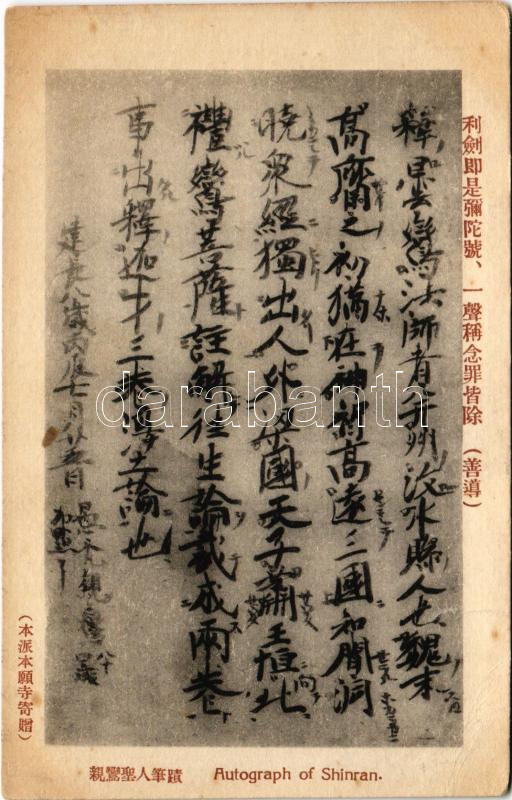 利劍即是彌陀號、一聲稱念罪皆除 (善導)
釋曇鸞法師者并州汶水縣人也魏末
高齋之初猶在神智高遠三國知聞洞
曉衆經獨出人外梁國天子蕭王恒北
禮鸞菩薩註解往生論裁成兩卷
事出釋迦才三卷淨土論也
建長八歳丙辰七月廿五日
愚禿親鸞八十四歳
加點了
(本派本願寺寄贈)
親鸞聖人筆蹟
Autograph of Shinran.
darabanth